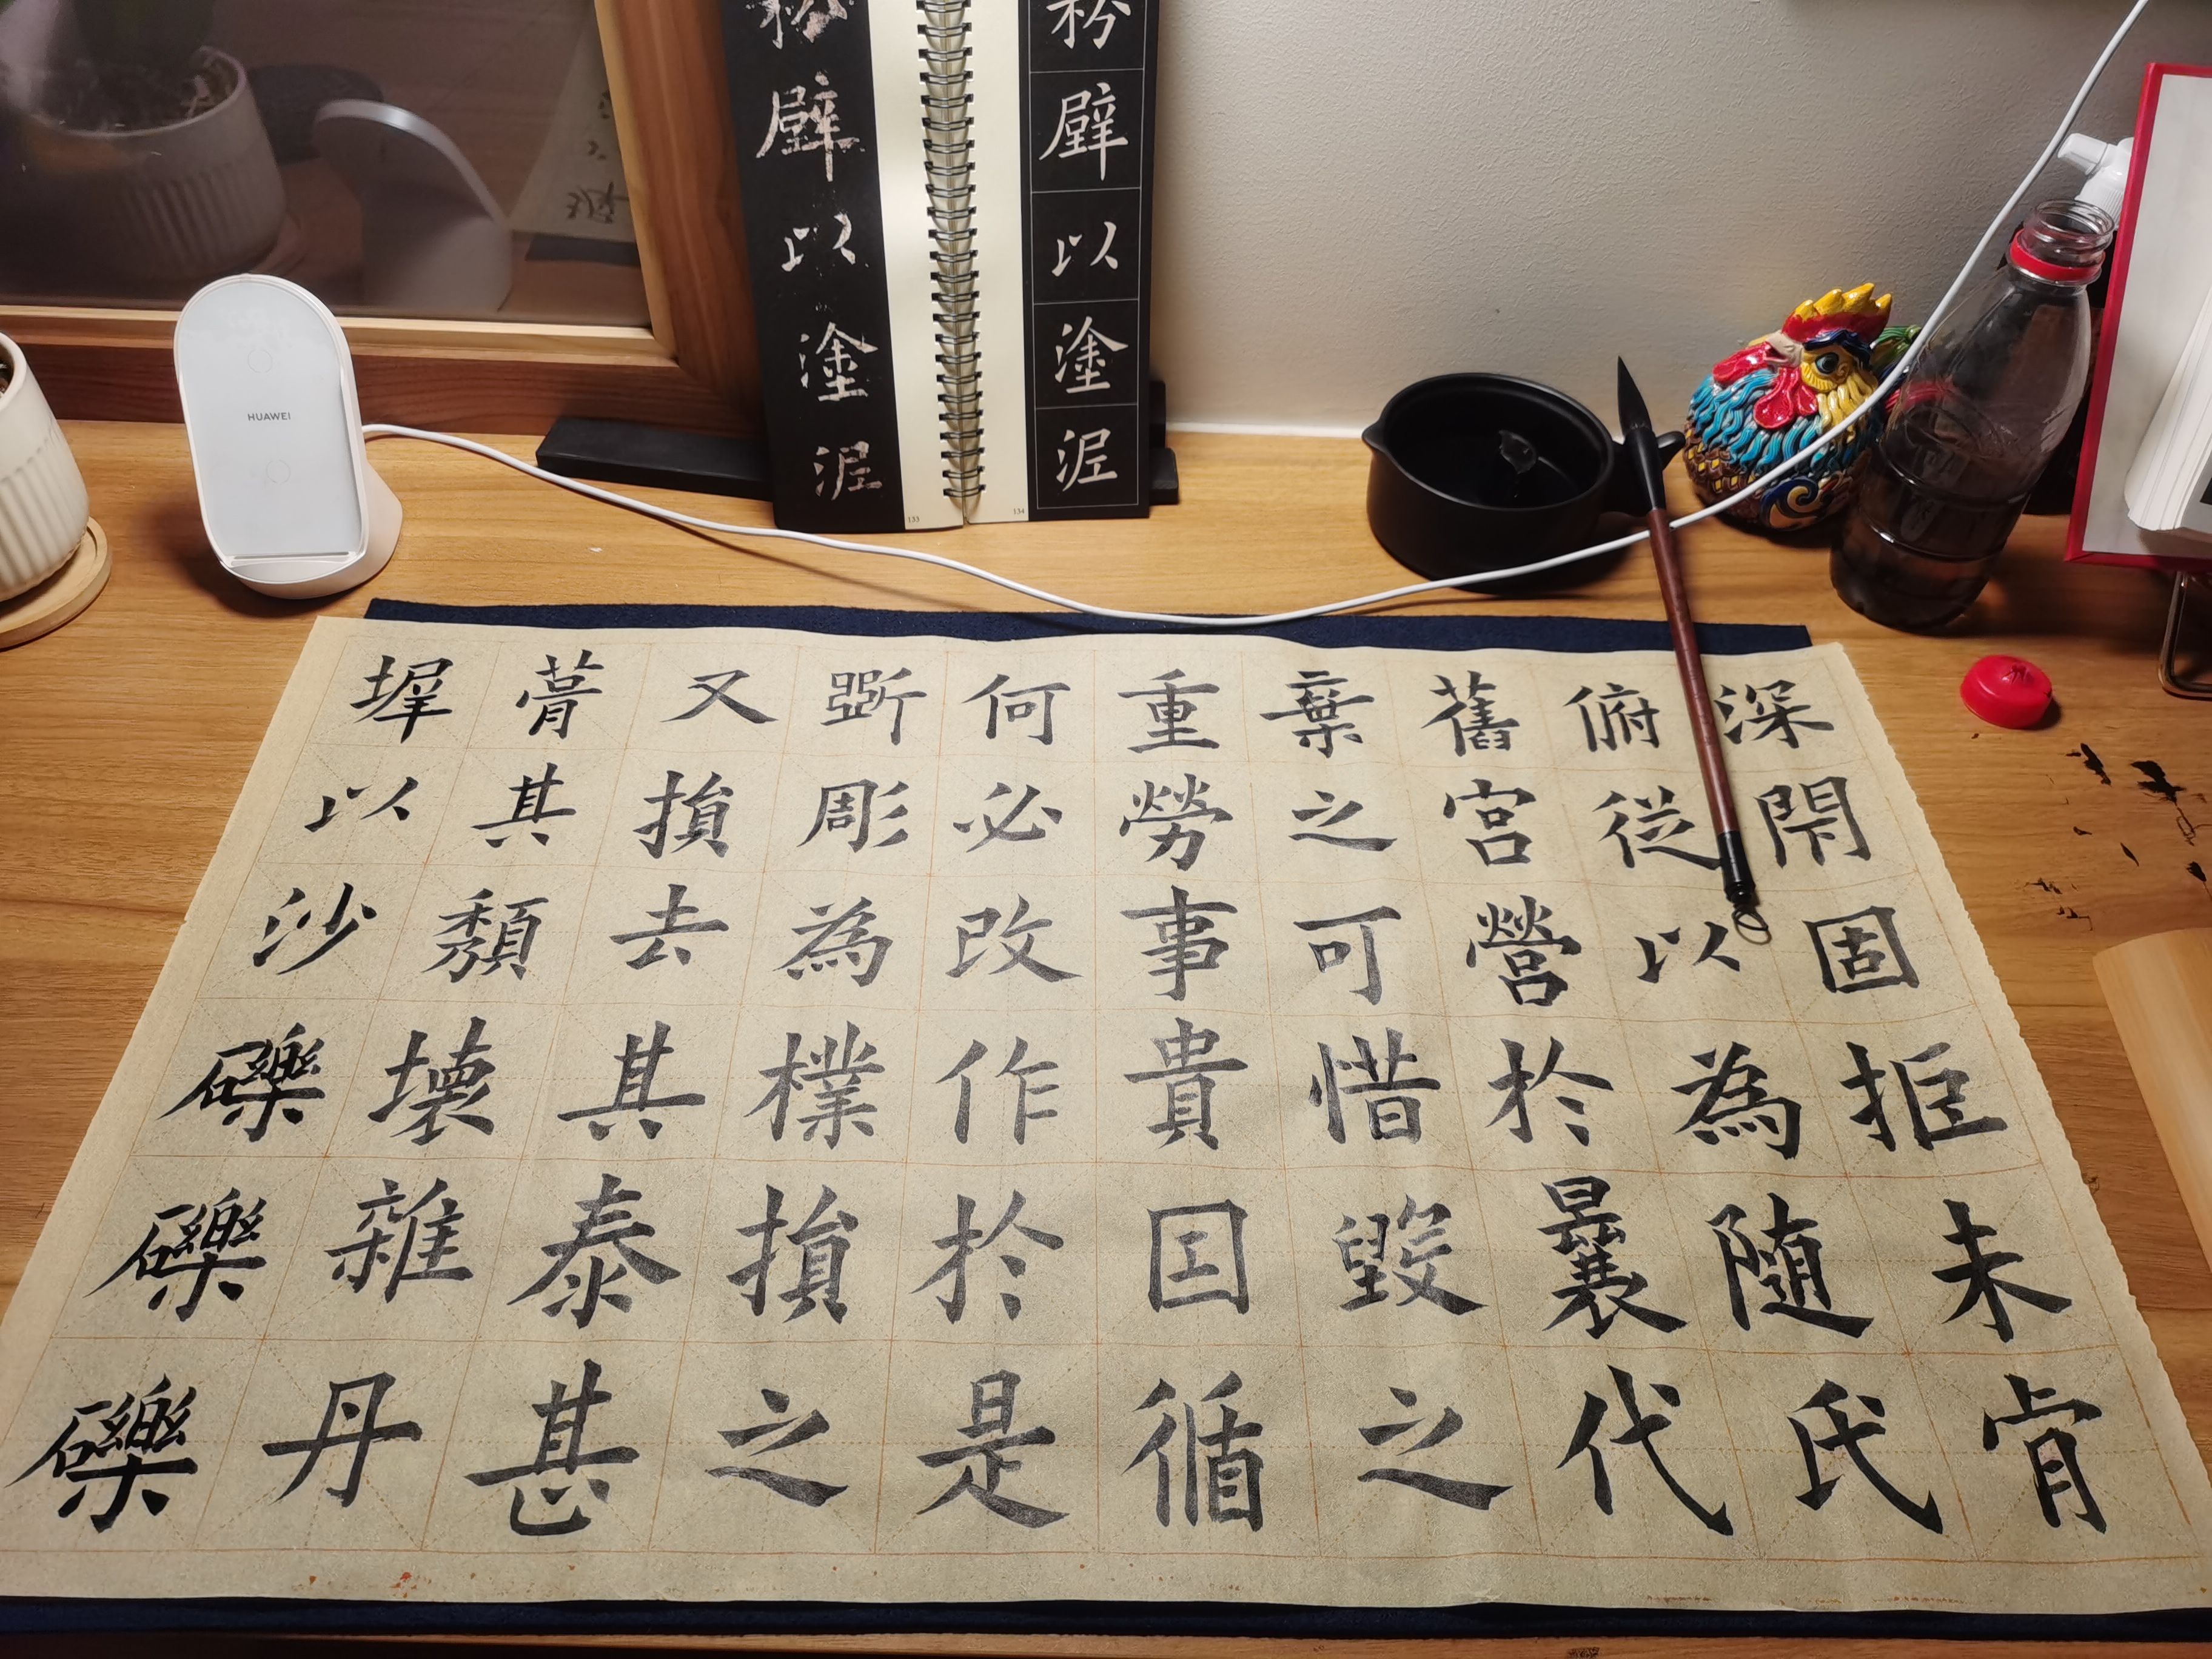 深閇固拒未肯
俯從以為随氏
舊宮營於曩代
棄之可惜毀之
重勞事貴因循
何必改作於是
斵彫為樸損之
又損去其泰甚
葺其頹壞雜丹
墀以沙礫礫礫
粉壁以塗泥
粉壁以塗泥
133
134
HUAWEI